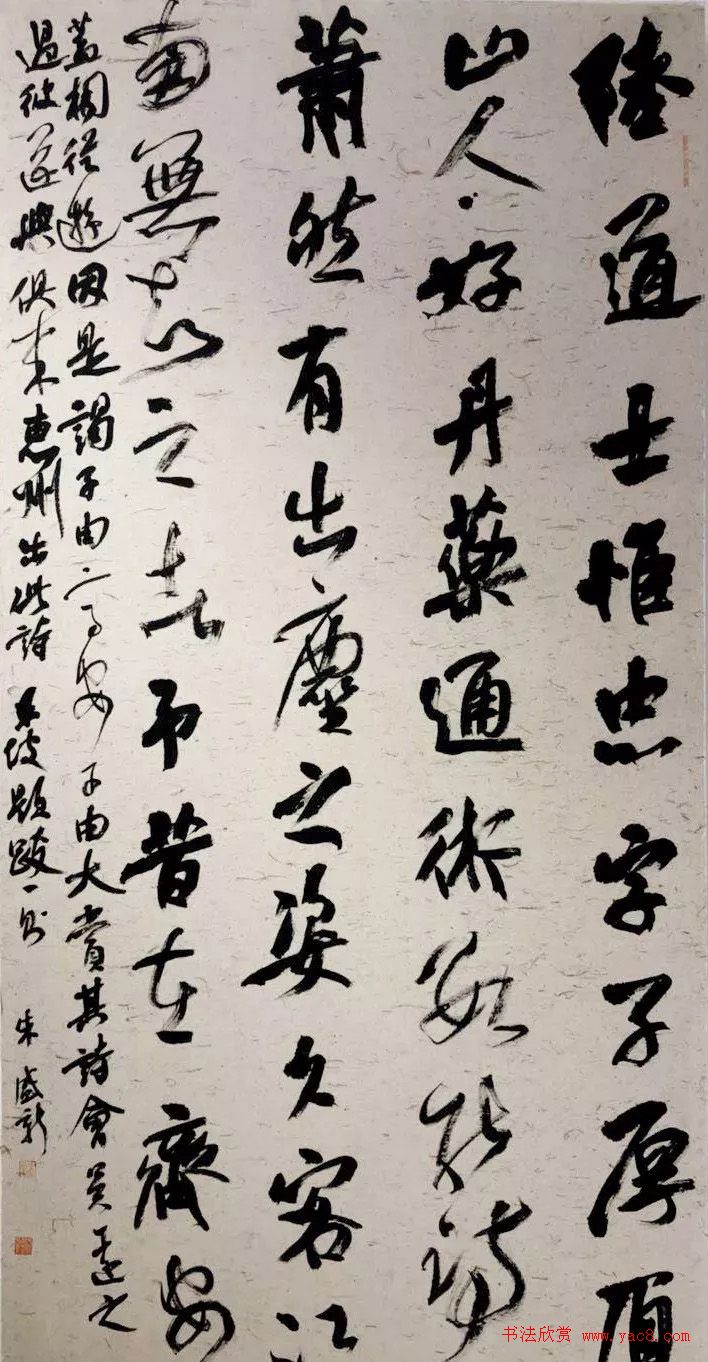 陸道士惟忠字子厚眉
山人好丹藥通術數能詩
蕭然有出塵之姿久客江
南無知之者予昔在齊安
蓋相從遊因是謁子由高安子由大賞其詩會吳遠之
過彼遂與俱來惠州出此詩 東坡題跋一則 朱盛新
书法欣赏 www.yac8.com